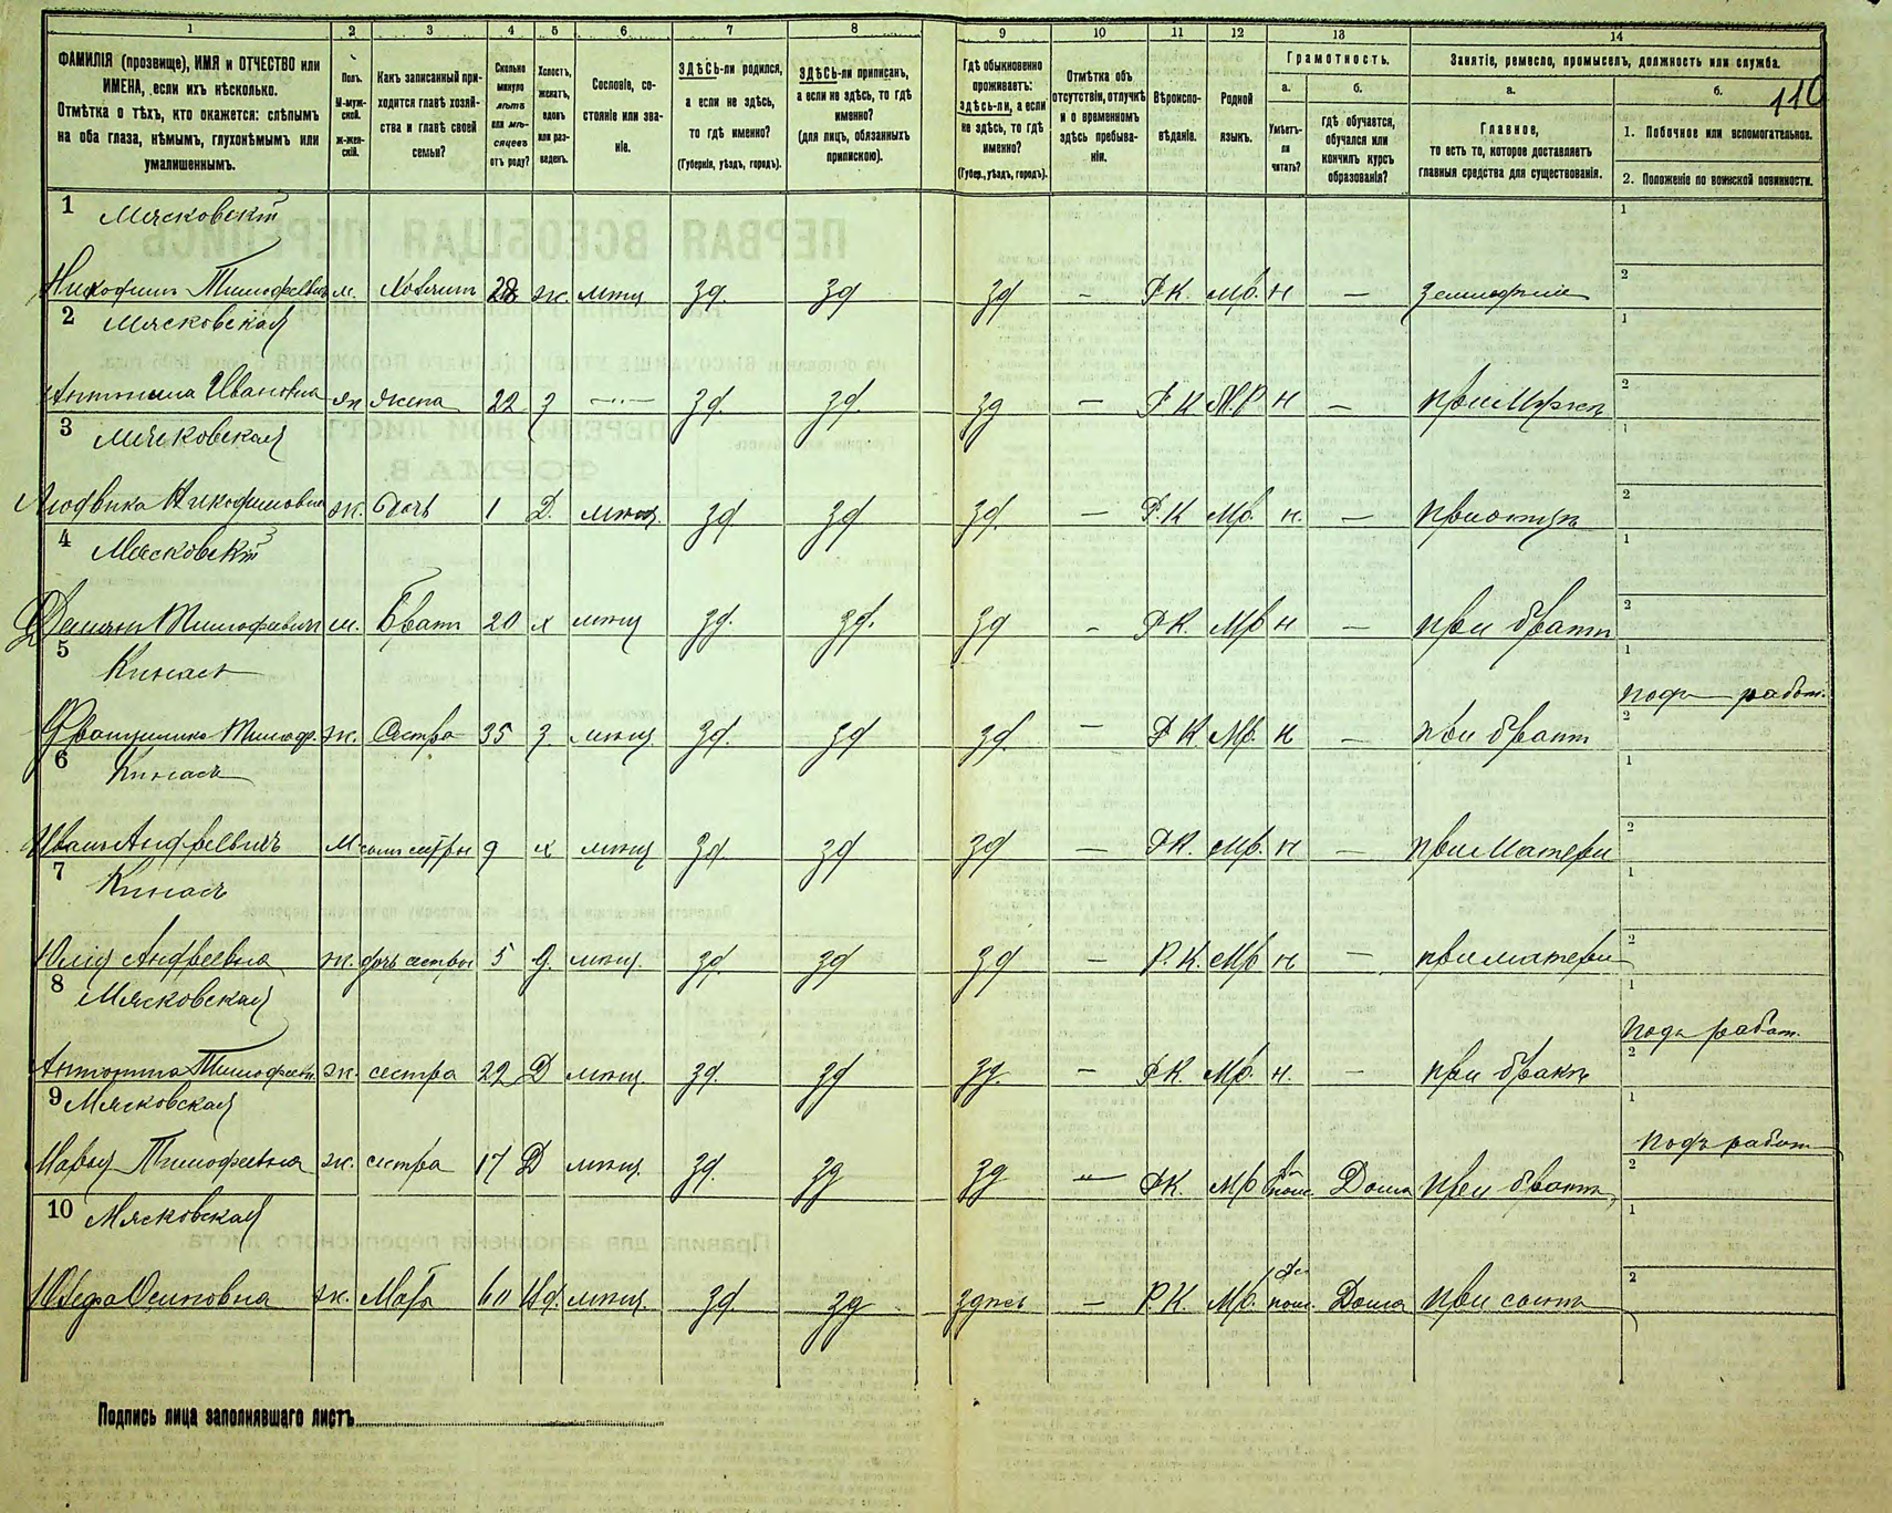 1 2 3 4 5 6 7 8 9 10 11 12 13 14
110
ФАМИЛІЯ (прозвище), ИМЯ и ОТЧЕСТВО или ИМЕНА, если ихъ нѣсколько.
Отмѣтка о тѣхъ, кто окажется: слѣпымъ на оба глаза, нѣмымъ, глухонѣмымъ или умалишеннымъ.
Полъ.
М-мужской.
Ж-женскій.
Какъ записанный приходится главѣ хозяйства и главѣ своей семьи?
Сколько минуло лѣтъ или мѣсяцевъ отъ роду?
Холостъ, женатъ, вдовъ или разведенъ.
Сословіе, состояніе или званіе.
ЗДѢСЬ-ли родился, а если не здѣсь, то гдѣ именно?
(Губернія, уѣздъ, городъ).
ЗДѢСЬ-ли приписанъ, а если не здѣсь, то гдѣ именно?
(для лицъ, обязанныхъ припискою).
Гдѣ обыкновенно проживаетъ: здѣсь-ли, а если не здѣсь, то гдѣ именно?
(Губер., уѣздъ, городъ).
Отмѣтка объ отсутствіи, отлучкѣ и о временномъ здѣсь пребываніи.
Вѣроисповѣданіе.
Родной языкъ.
Грамотность.
а.
Умѣетъ-ли читать?
б.
Гдѣ обучается, обучался или кончилъ курсъ образованія?
Занятіе, ремесло, промыселъ, должность или служба.
а.
Главное,
то есть то, которое доставляетъ главныя средства для существованія.
б.
1. Побочное или вспомогательное.
2. Положеніе по воинской повинности.
1 Мясковскій
Никодимъ м. 28 ж. мѣщ. зд. зд зд — Р.К. н —
2 Мясковская
Антонина Ивановна ж жена 22 з зд. зд. зд — Р К н — при мужѣ
3 Мясковская
Людвика Никодимовна ж. дочь 1 Д. мѣщ. зд зд зд. — Р.К н. — при отцѣ
4 Мясковскій
м. братъ 20 х мѣщ зд. зд. зд - Р К. н — при братѣ
5
ж. Сестра 35 з. мѣщ. зд. зд зд. — Р К. н — при братѣ
подъ работ.
6
Иванъ Андреевичъ м сынъ сестры 9 х мѣщ зд. зд зд — Р К. н — при матери
7
Юлія Андреевна ж. дочь сестры 5 д. мѣщ. зд. зд зд — Р.К. н — при матери
8 Мясковская
Антонина ж. сестра 22 Д мѣщ. зд. зд зд. — Р К. н. — при братѣ
подъ работ.
9 Мясковская
Марья Тимофеевна ж. сестра 17 Д мѣщ. зд. зд зд — Р К. Дома при братѣ
подъ работ
10 Мясковская
Юзефа Осиповна ж. Мать 60 Вд. мѣщ. зд. зд здѣсь — Р.К. Дома при сынѣ
Подпись лица заполнявшаго листъ